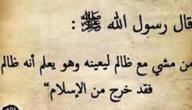 قال رسول الله ﷺ :
من مشى مع ظالم ليعينه وهو يعلم أنه ظالم
فقد خرج من الإسلام”